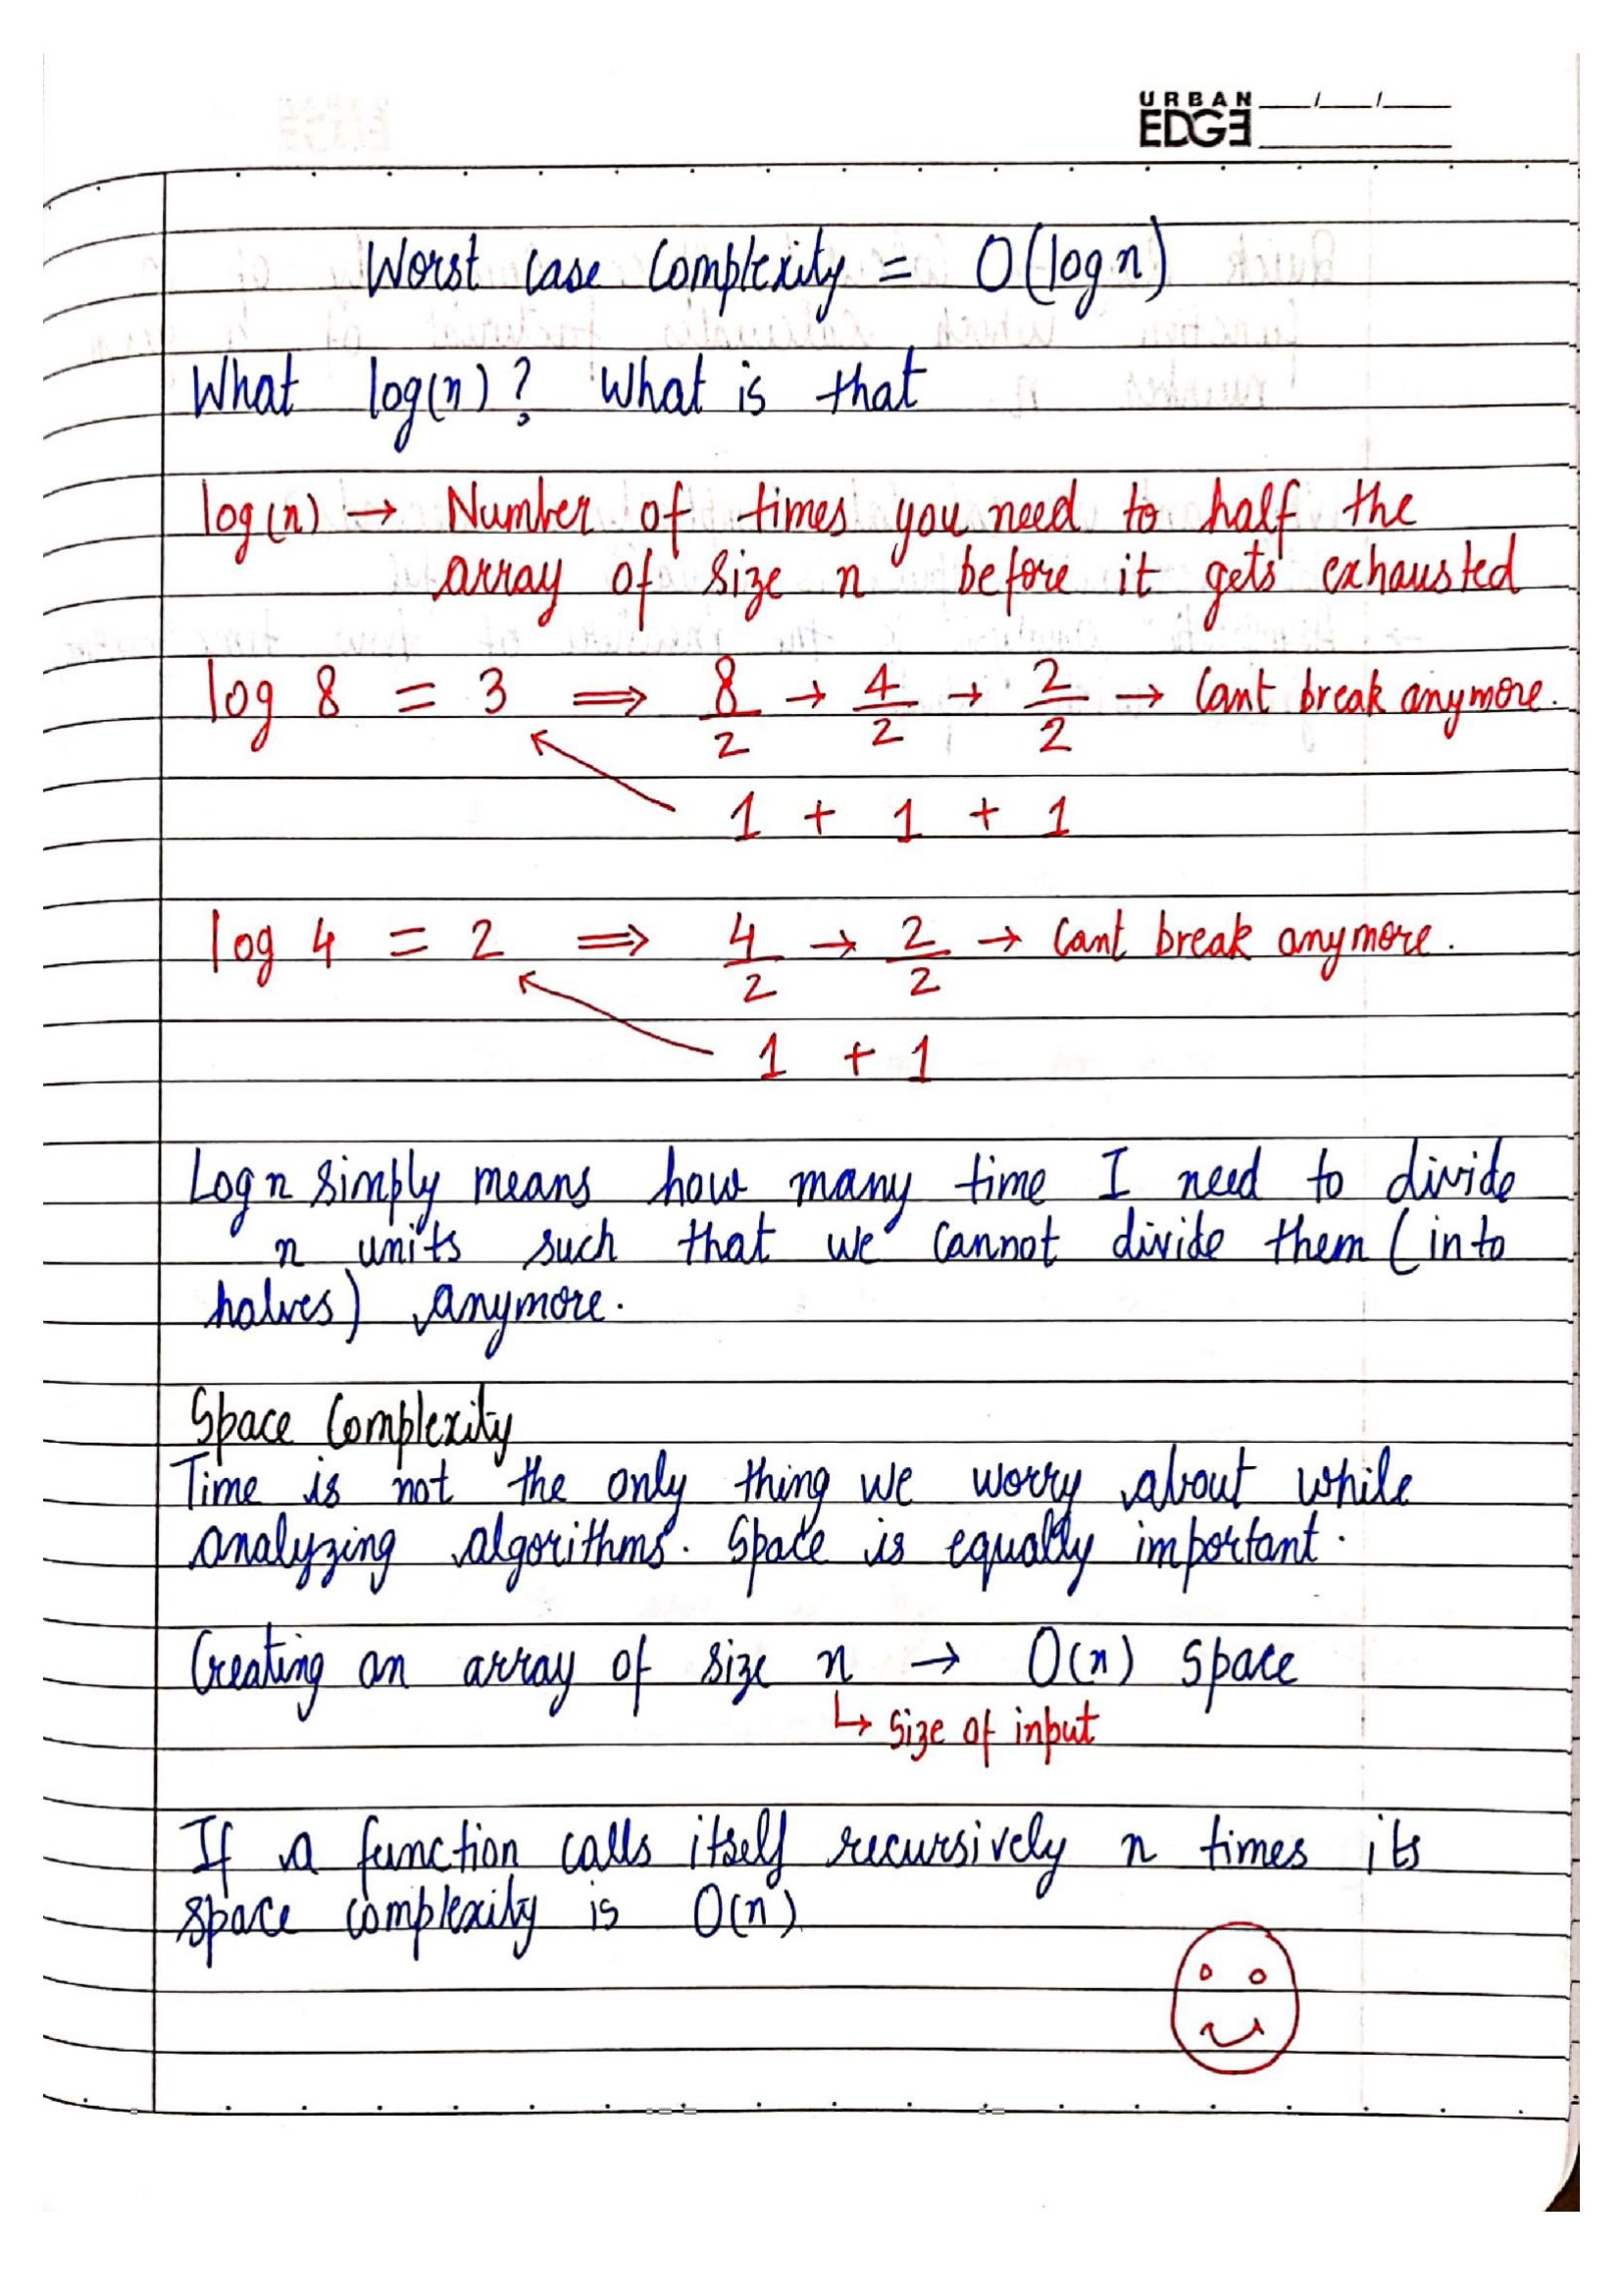 URBAN
EDGE
Worst Case Complexity = O(log n)
What log(n)? What is that
log(n) → Number of times you need to half the
array of size n before it gets exhausted
log 8 = 3 ⟹ 8/2 → 4/2 → 2/2 → Cant break anymore.
1 + 1 + 1
log 4 = 2 ⟹ 4/2 → 2/2 → Cant break anymore.
1 + 1
Log n simply means how many time I need to divide
n units such that we cannot divide them (into
halves) anymore.
Space Complexity
Time is not the only thing we worry about while
analyzing algorithms. Space is equally important.
Creating an array of size n → O(n) Space
↳ Size of input
If a function calls itself recursively n times its
space complexity is O(n)